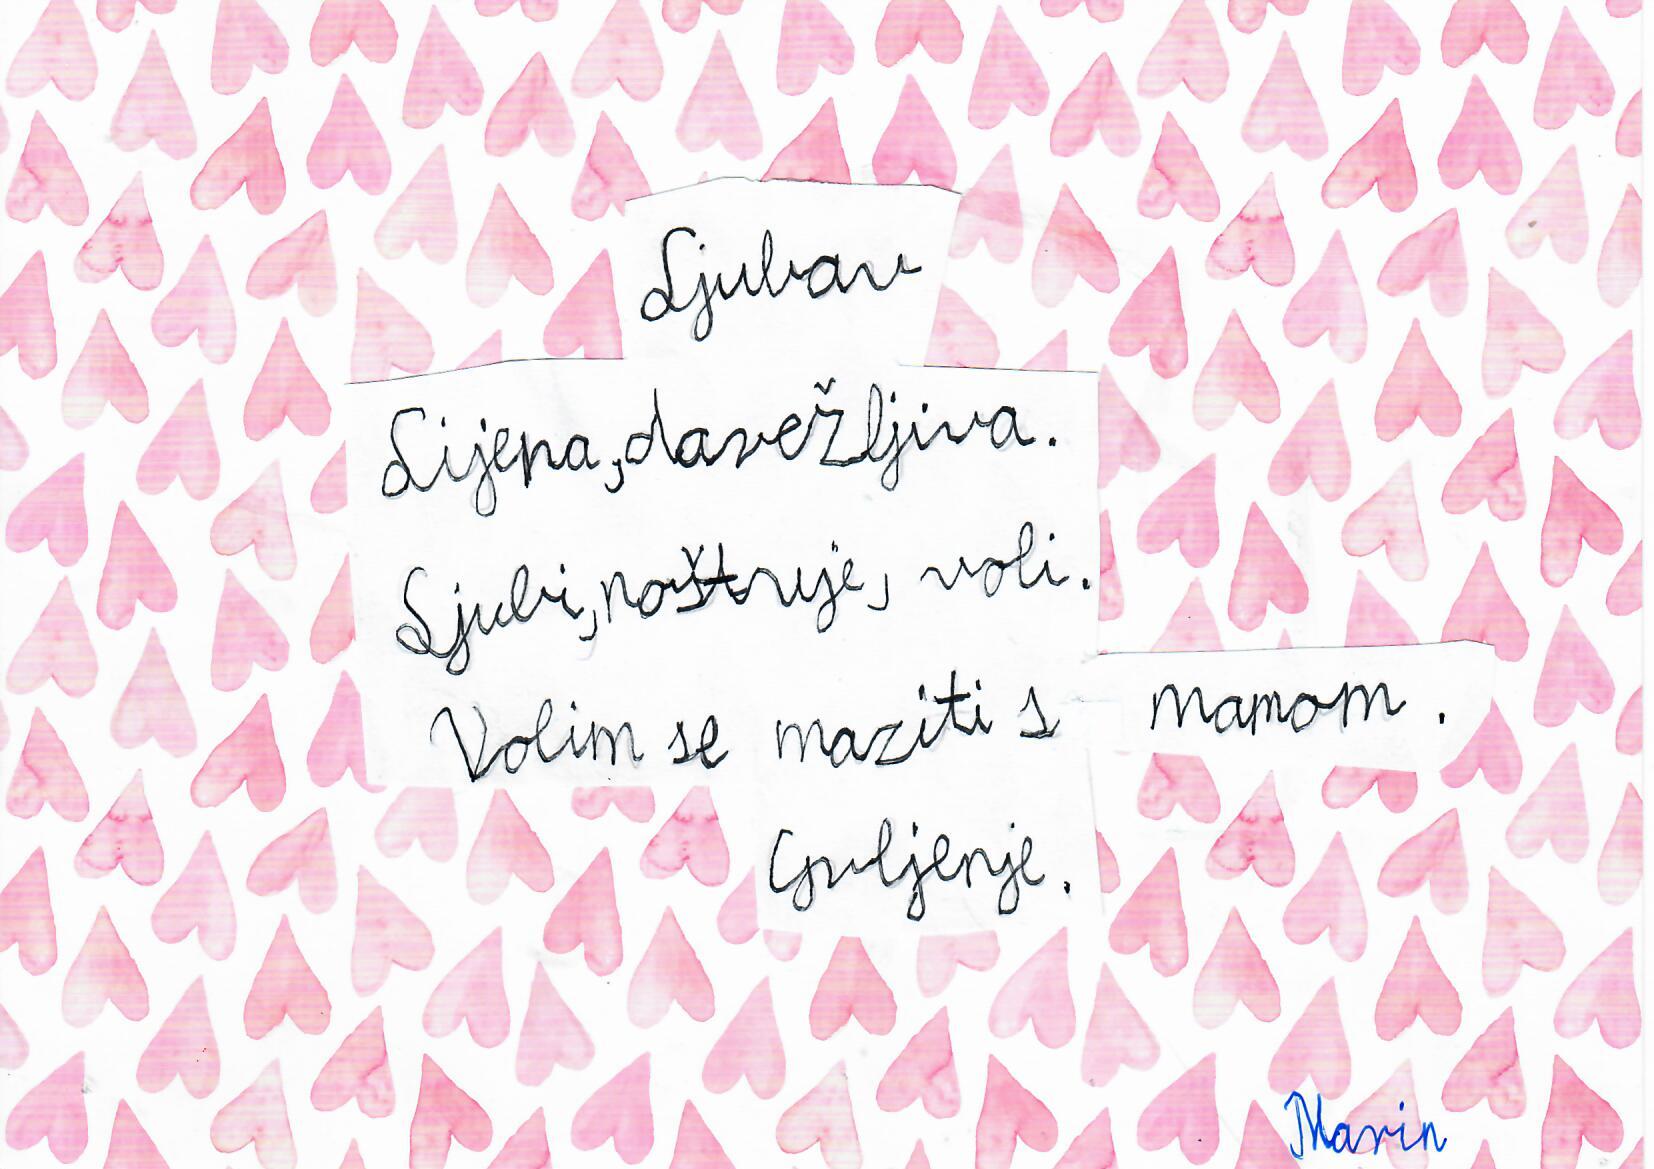 Ljubav
Lijepa, davežljiva.
Ljubi, poštuje, voli.
Volim se maziti s mamom.
Grljenje.
Marin